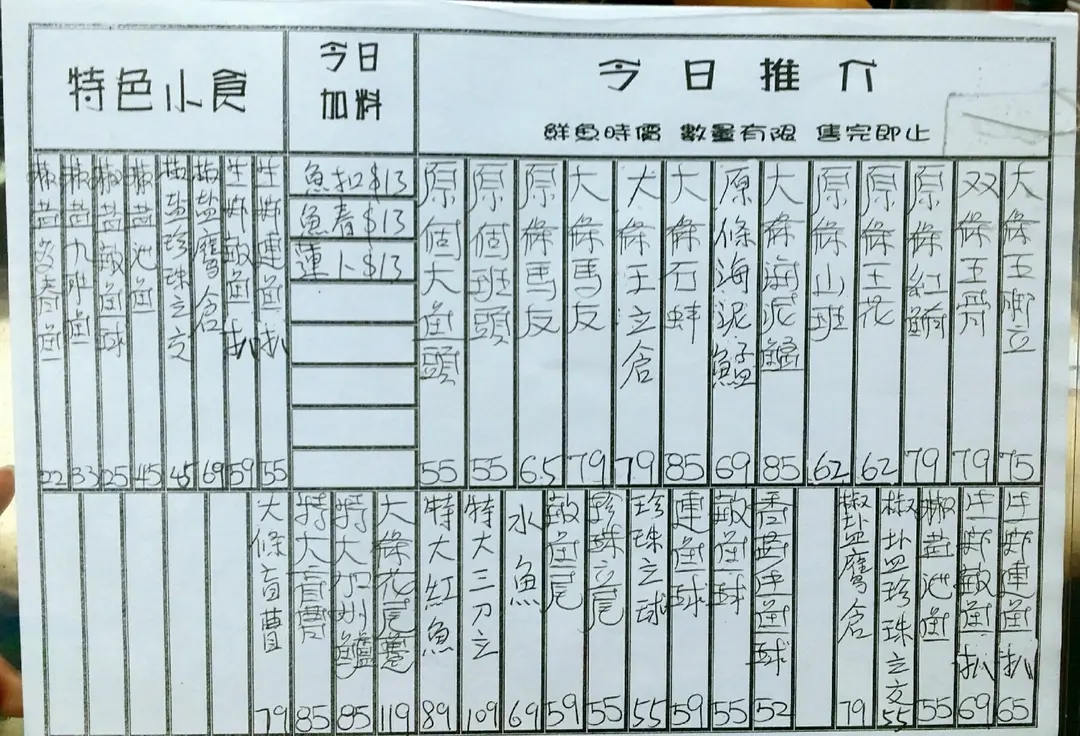 今日推介
鮮魚時價 數量有限 售完即止
大條五刂立 75
双双五骨 79
原條紅 79
原條王花 62
原條山班 62
大條海泥鯭 85
原條海泥鯭 69
大條石蚌 85
大條王立倉 79
大條馬友 79
原條馬友 65
原個班頭 55
原個大魚頭 55
今日加料
魚扣$13
魚春$13
蓮卜$13
特色小食
生連魚扒 55
生魚扒 59
椒盐鷹倉 69
椒盐珍珠立交 45
椒盐池魚 45
椒盐魚球 25
椒盐九班魚 33
椒盐春魚 22
生連魚扒 65
生魚扒 69
椒盐池魚 55
椒盐珍珠立交 55
椒盐鷹倉 79
香茜連魚球 52
魚球 55
連魚球 59
珍珠立球 55
珍珠立尾 55
魚尾 59
水魚 69
特大三刀立 109
特大紅魚 89
大條花尾躉 119
特大加州鱸 85
特大盲曹 85
大條盲曹 79